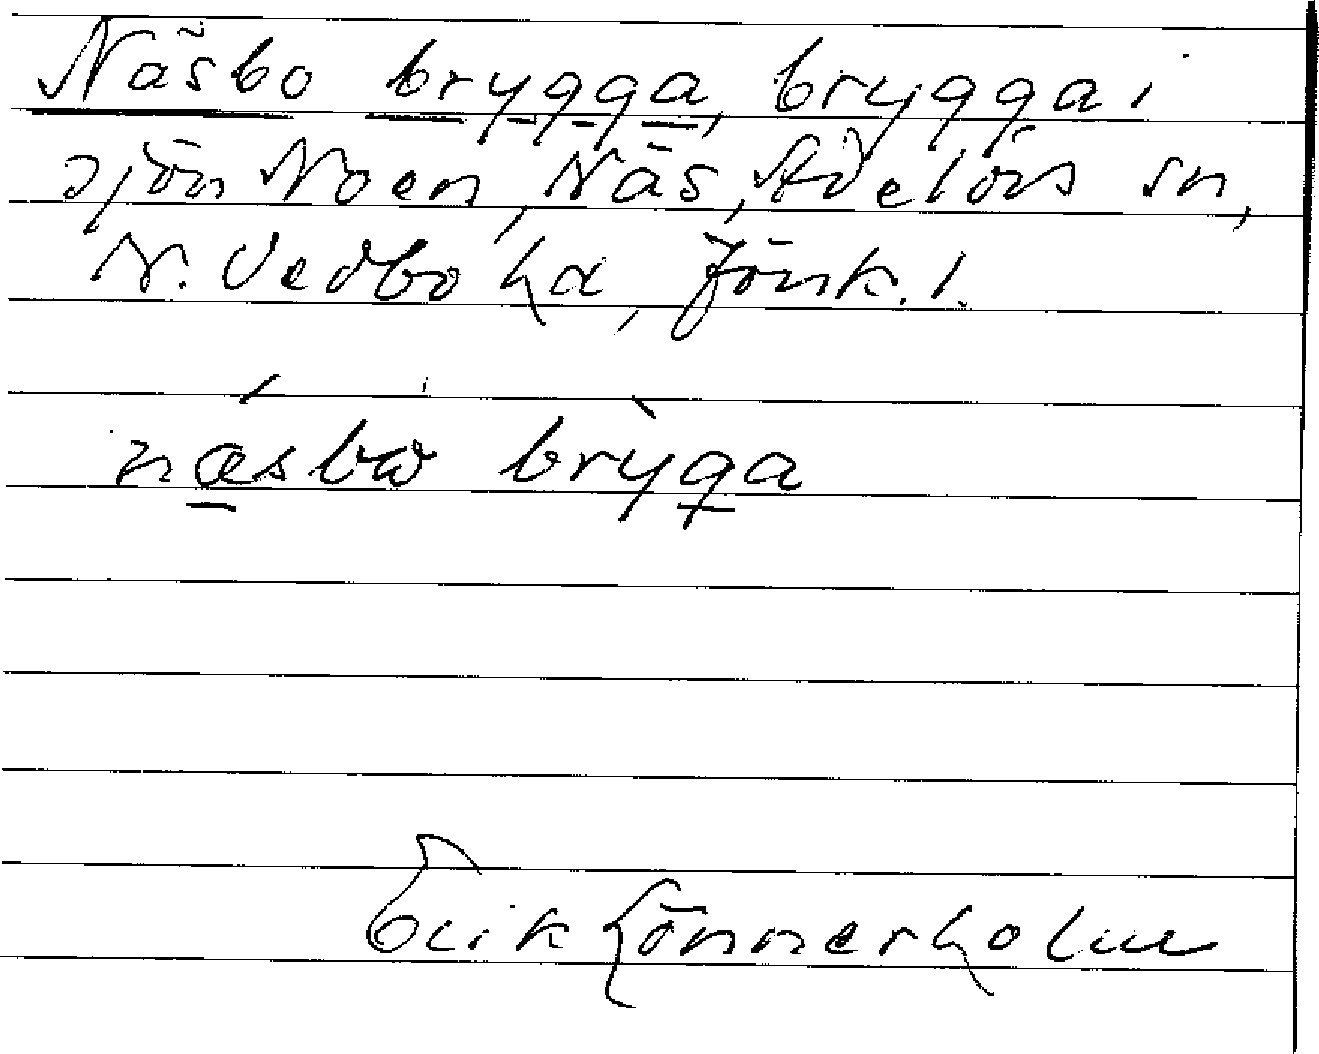 Näsbo brygga, brygga i
sjön Noen, Näs, Adelövs sn,
N. Vedbo hd, Jönk. l.
næsbω brỳga
Erik Lönnerholm